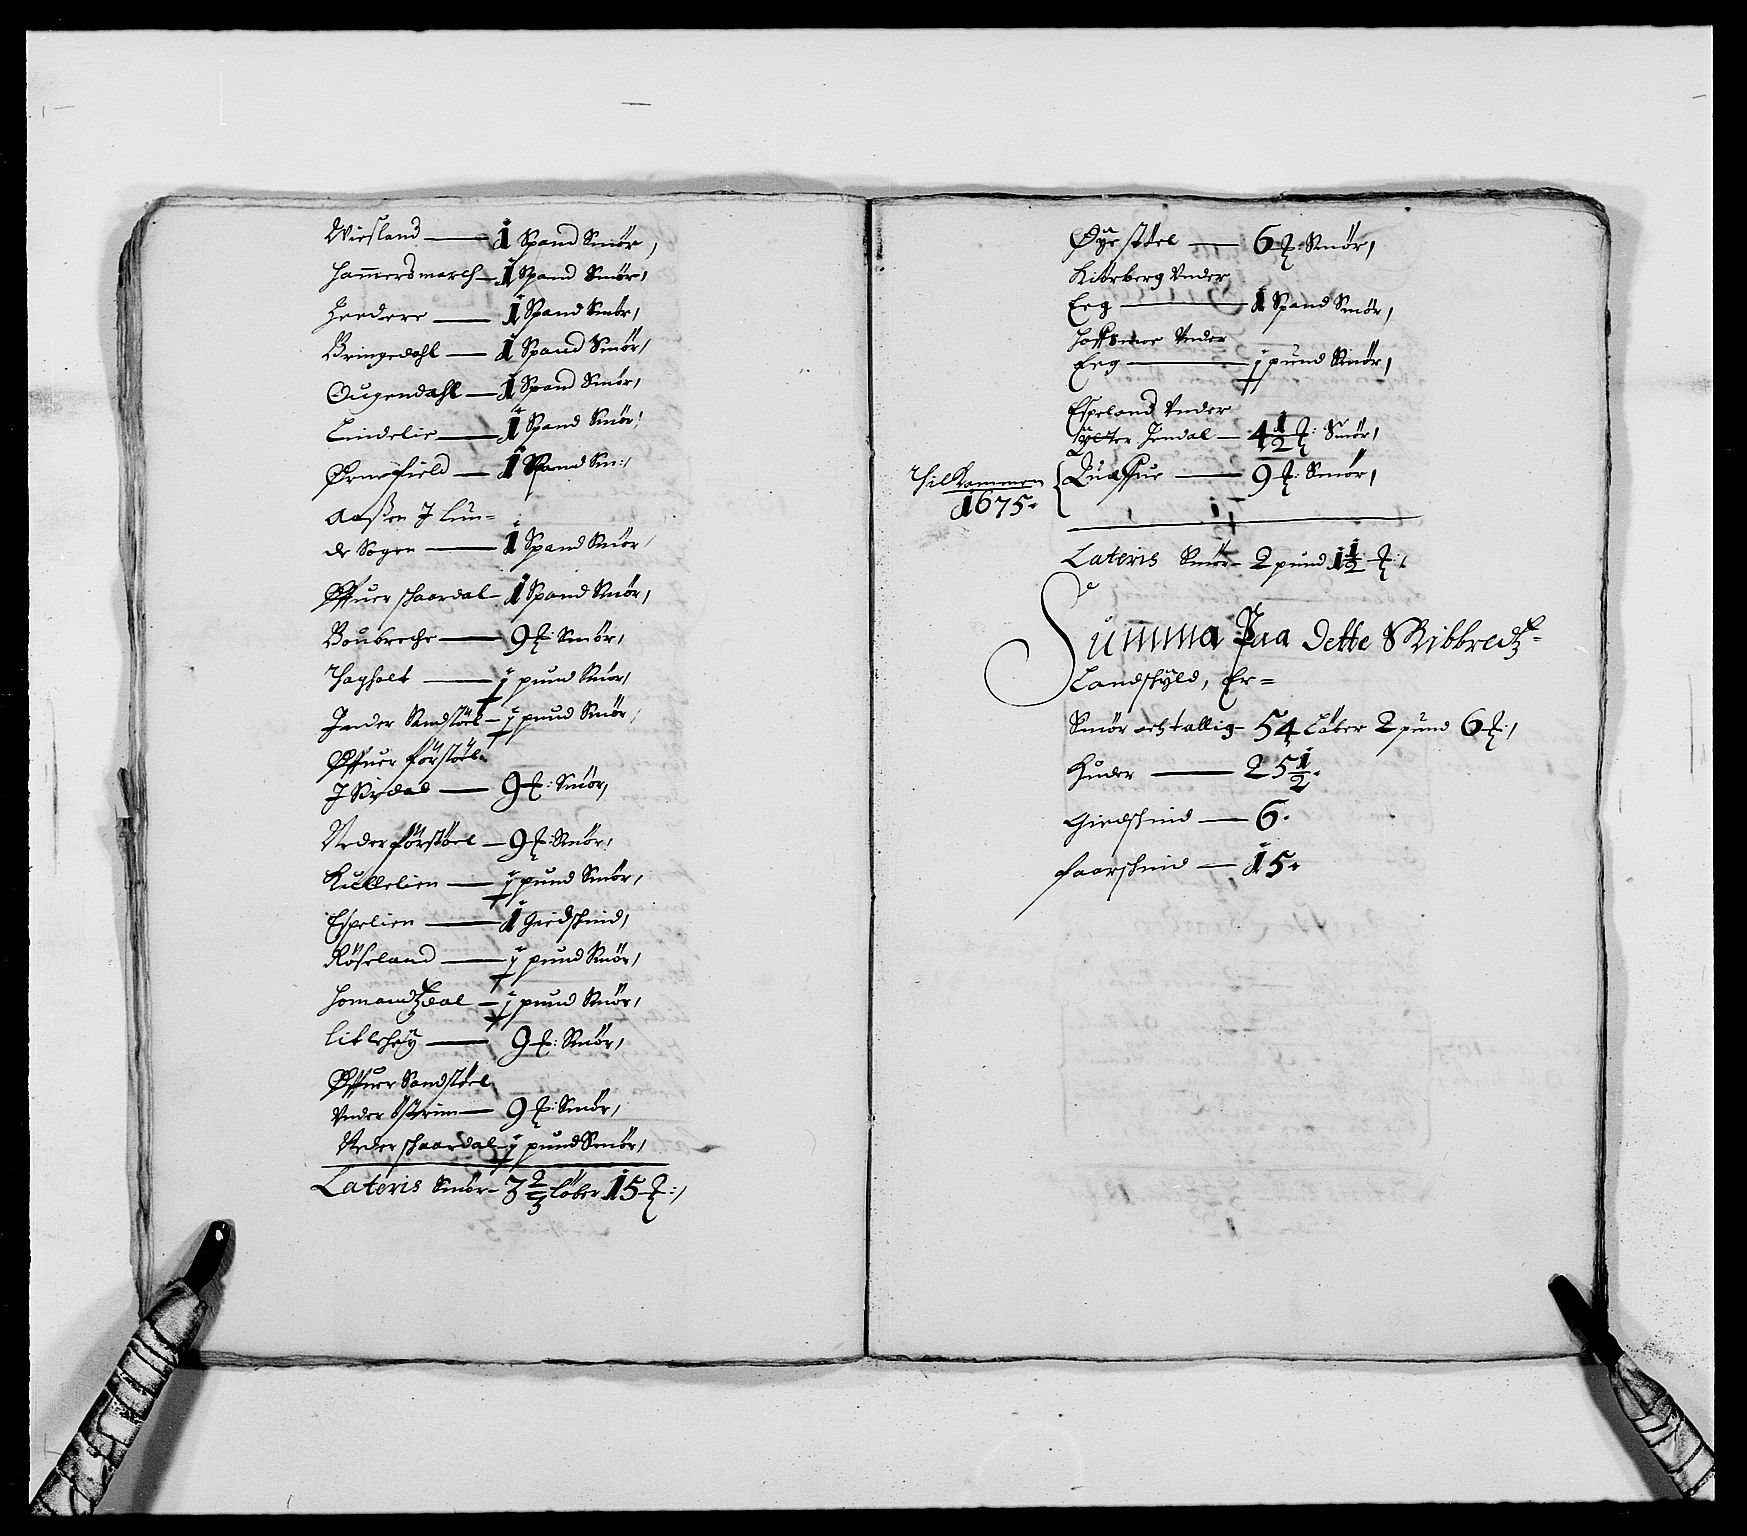 Wiesland — 1 Spand Smör,
Hammersmarch — 1 Spand Smör,
Heedere — 1 Spand Smör,
Bringedahl — 1 Spand Smör,
Ougendahl — 1 Spand Smör,
Lindelie — 1 Spand Smör,
Ørnefield — 1 Spand Sm:,
Aaßen J Lun-
de Sogen — 1 Spand Smör,
Øffuer schaardal — 1 Spand Smör,
Boubreche — 9 ℔: Smör,
Hagholt — ½ pund Smör,
Jnder Sandstöel — ½ pund Smör,
Øffuer förstöel
J Sirdal — 9 ℔: Smör,
Neder förstöel — 9 ℔: Smör,
Kullelien — ½ pund Smör,
Espelien — 1 Giedschind,
Röseland — ½ pund Smör,
Homandtzdal — ½ pund Smör,
Litlehey — 9 ℔: Smör,
Øffuer Sandstöel
Vnder Östrim — 9 ℔: Smör,
Neder schaardal — ½ pund Smör,
Lateris Smör — 3 2/3 Löber 15 ℔:,
Øyestöel — 6 ℔: Smör,
Kiörberg Vnder
Eeg — 1 Spand Smör,
Vnder
Eeg — ½ pund Smör,
Espeland Vnder
Ytter Hendal — 4 1/2 ℔: Smör,
Tilkommen
1675.
Quaffue — 9 ℔: Smör,
Lateris Smör — 2 pund 1 1/2 ℔:,
Summa Paa dette Skibbredtz-
Landschyld, Er=
Smör och tallig — 54 Löber 2 pund 6 ℔:,
Huder — 25 1/2.
Giedschind — 6.
faarschind — 15.